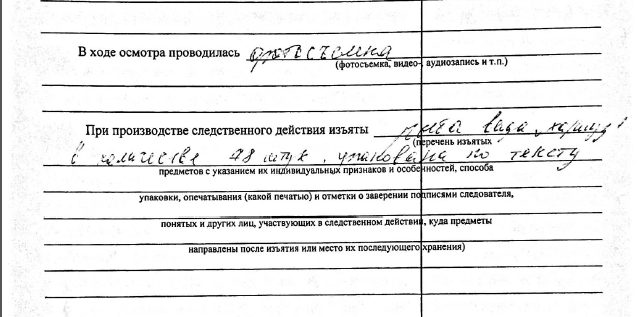 В ходе осмотра проводилась фотосъемка
(фотосъемка, видео-, аудиозапись и т.п.)
При производстве следственного действия изъяты рыба вида "хариуз"
(перечень изъятых
в количестве 48 штук, упакована по тексту
предметов с указанием их индивидуальных признаков и особенностей, способа
упаковки, опечатывания (какой печатью) и отметки о заверении подписями следователя,
понятых и других лиц, участвующих в следственном действии, куда предметы
направлены после изъятия или место их последующего хранения)